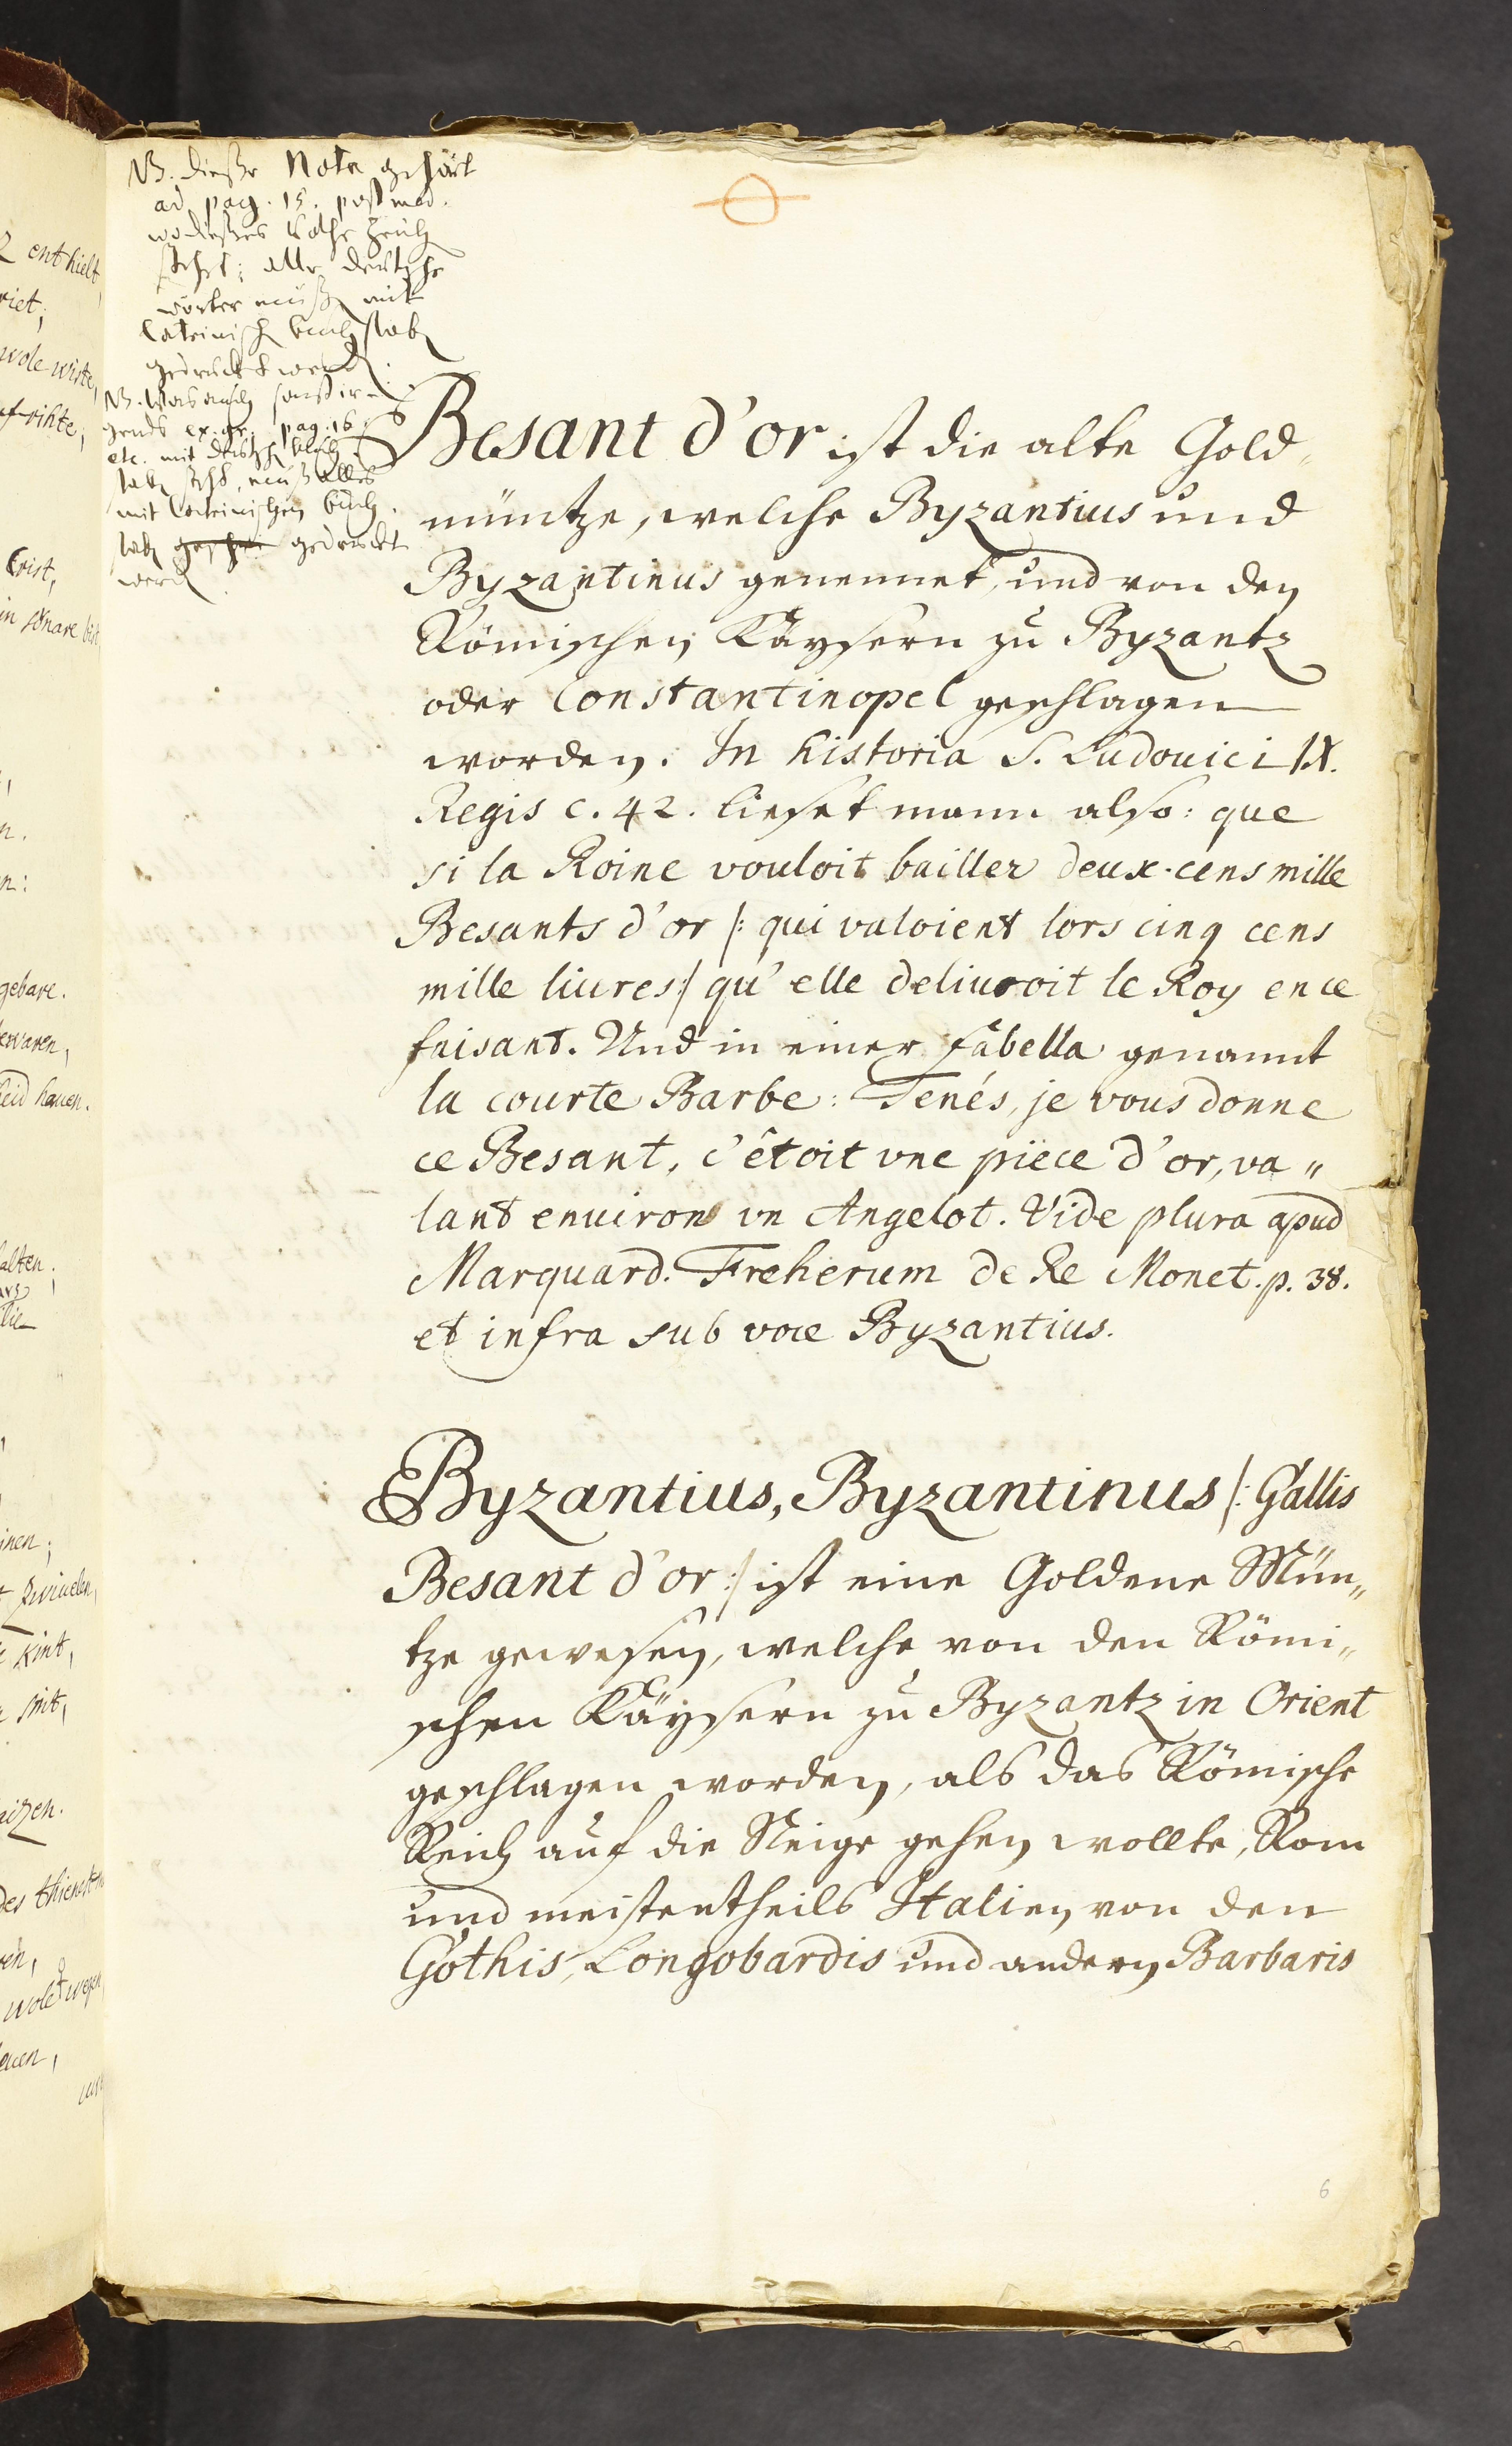 NB. diese Nota gehört
ad pag. 15. post med.
wo dießes rothe Zeich
stehet; alle deutsche
wörter müß mit
lateinisch buchstab
gedruckt werd.
NB. Was auch sonst ir-
gends ex. gr. pag. 16
etc. mit deutsch buch
stab steht, muß alles
mit lateinischen buch.
stab gedruckt
werd.
Besant d'or ist die alte Gold„
müntze, welche Byzantius und
Byzantinus genennet, und von den
Römischen Käysern zu Byzantz
oder Constantinopel geschlagen
worden. In historia S. Ludouici IX.
Regis c. 42. lieset mann also: que
si la Roine vouloit bailler deux-cens mille
Besants d'or /: qui valoient lors cinq cens
mille liures :/ qu'elle deliuroit le Roy en ce
faisant. Und in einer fabella genannt
la courte Barbe: Tenés, je vous donne
ce Besant, c'êtoit vne piëce d'or, va„
lant enuiron vn Angelot. Vide plura apud
Marquard. Freherum de Re Monet. p. 38.
et infra sub voce Byzantius.
Byzantius, Byzantinus /: Gallis
Besant d'or :/ ist eine Goldene Mün„
tze gewesen, welche von den Römi„
schen Käysern zu Byzantz in Orient
geschlagen worden, als das Römische
Reich auf die Neige gehen wollte, Rom
und meistentheils Italien von den
Gothis, Longobardis und andern Barbaris
6